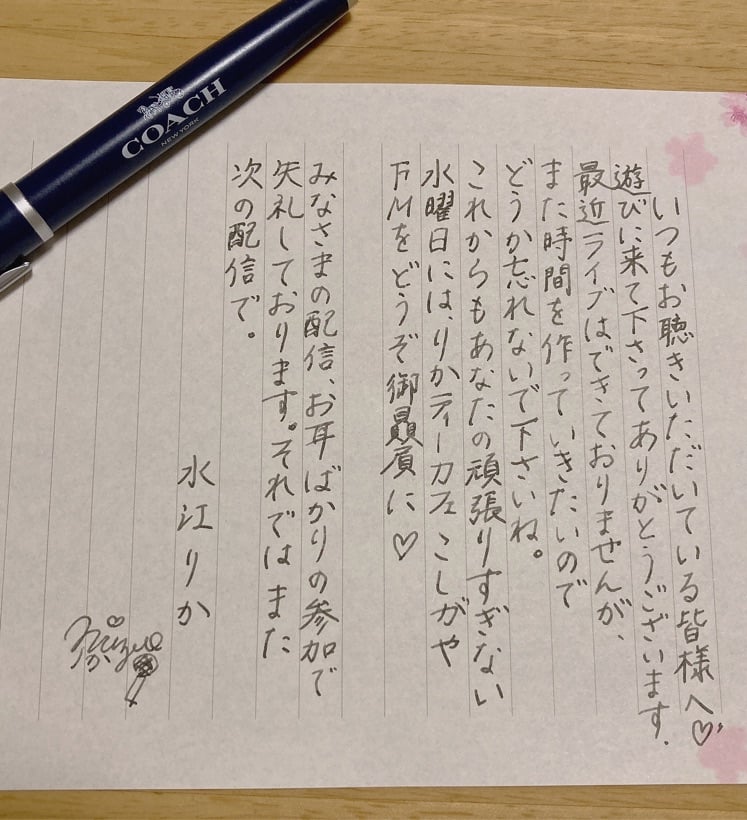 COACH
NEW YORK
いつもお聴きいただいている皆様へ♡
遊びに来て下さってありがとうございます.
最近ライブはできておりませんが、
また時間を作っていきたいので
どうか忘れないで下さいね。
これからもあなたの頑張りすぎない
水曜日には、りかティーカフェ こしがや
FMをどうぞ御贔屓に♡
みなさまの配信、お耳ばかりの参加で
失礼しております。それではまた
次の配信で。
水江りか